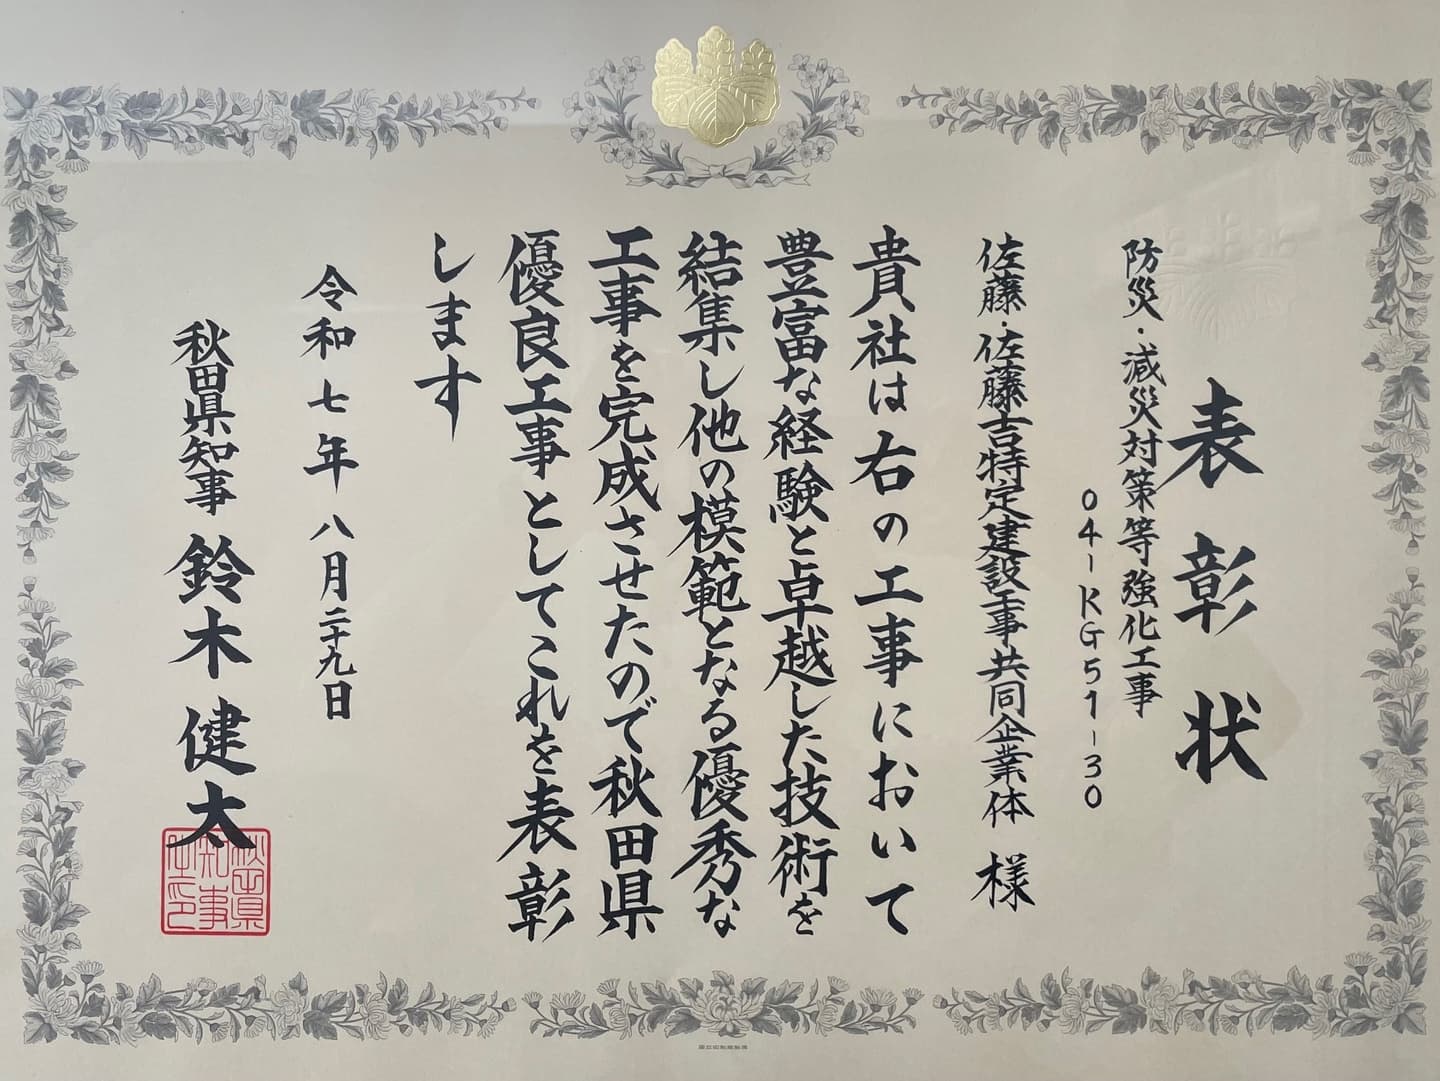 表彰状
防災・減災対策等強化工事
04-KG51-30
佐藤・佐藤吉特定建設工事共同企業体 様
貴社は右の工事において
豊富な経験と卓越した技術を
結集し他の模範となる優秀な
工事を完成させたので秋田県
優良工事としてこれを表彰
します
令和七年八月二十九日
秋田県知事 鈴木健太
秋田県
知事
之印